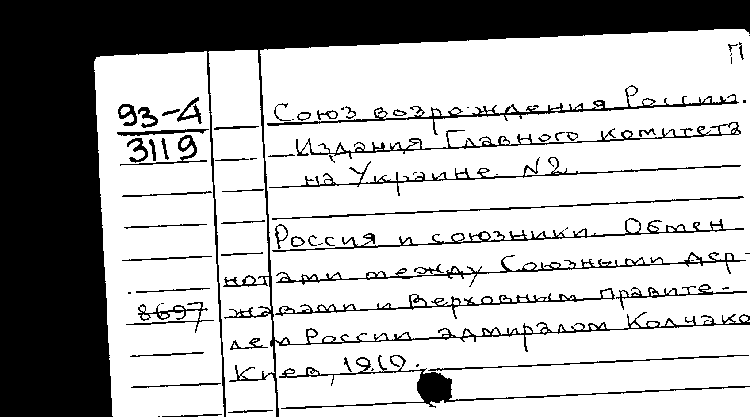 П
93-4
3119
Союз возрождения России.
Издания Главного комитета
на Украине. N2.
Россия и союзники. Обмен
нотами между Союзными дер-
8697
жавами и Верховным правите-
лем России адмиралом Колчако
Киев, 1919.